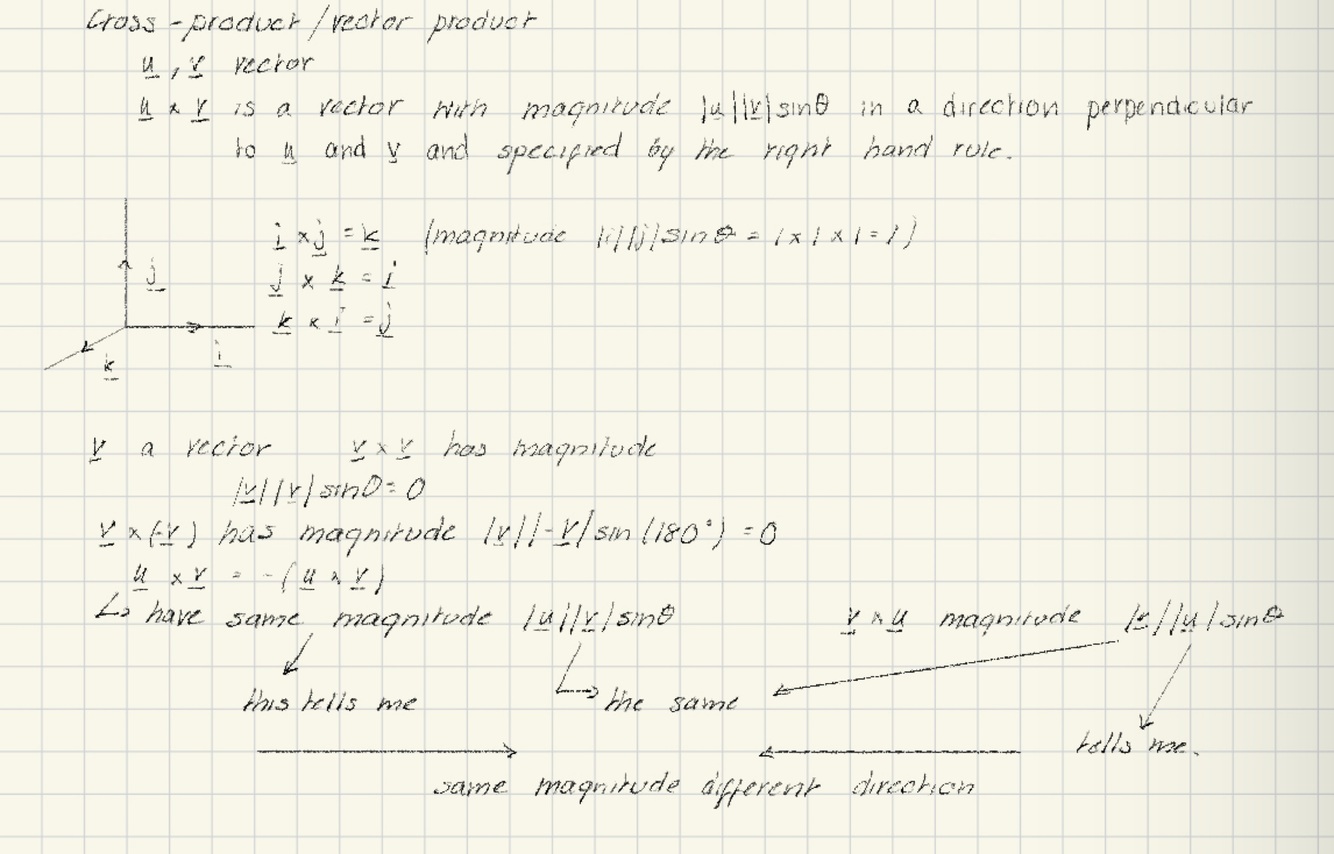 Cross-product/vector product
u, v vector
u × v is a vector with magnitude |u||v|sinθ in a direction perpendicular
to u and v and specified by the right hand rule.
i × j = k (magnitude |i||j|sinθ = 1×1×1=1)
j
j × k = i
k × i = j
i
k
v a vector v × v has magnitude
|v||v|sin0=0
v × (-v) has magnitude |v||-v|sin(180°) = 0
u × v = -(u × v)
↳ have same magnitude |u||v|sinθ v × u magnitude |v||u|sinθ
this tells me the same
tells me.
same magnitude different direction